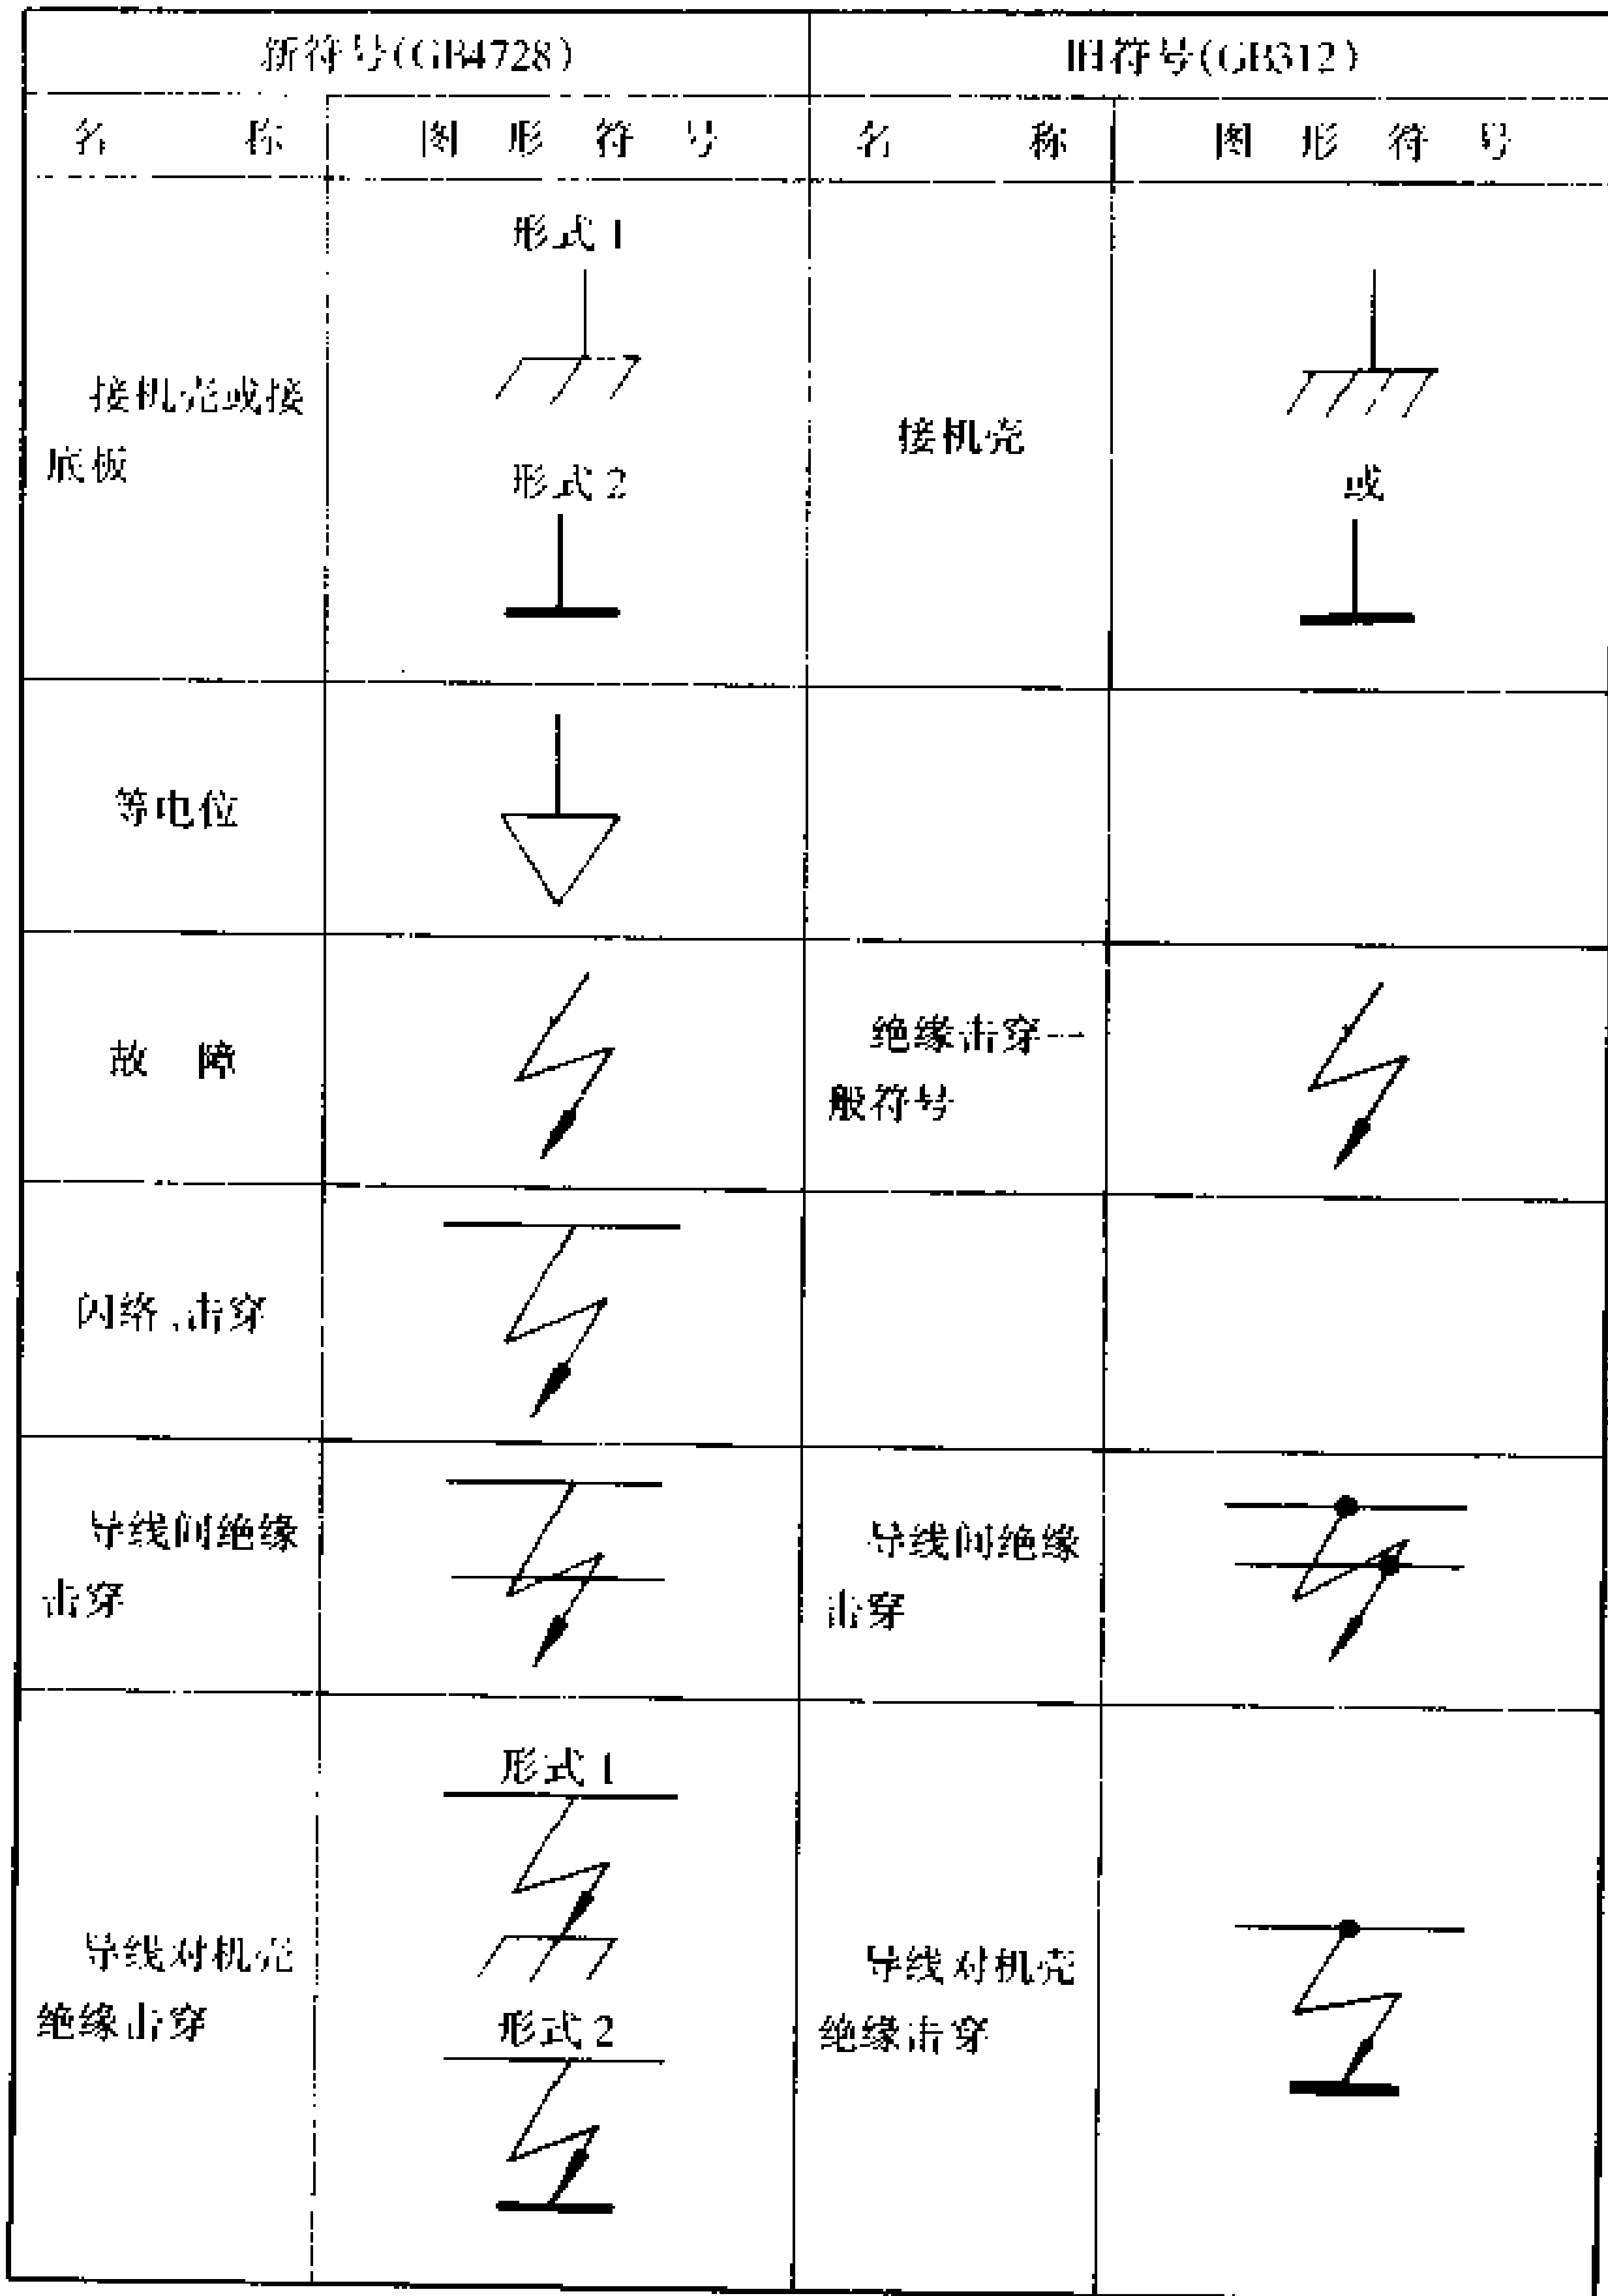 新符号(GB4728)
旧符号(GB312)
名 称
图 形 符 号
名 称
图 形 符 号
接机壳或接
底板
形式 1
形式 2
接机壳
或
等电位
故 障
绝缘击穿一
般符号
闪络、击穿
导线间绝缘
击穿
导线间绝缘
击穿
导线对机壳
绝缘击穿
形式 1
形式 2
导线对机壳
绝缘击穿